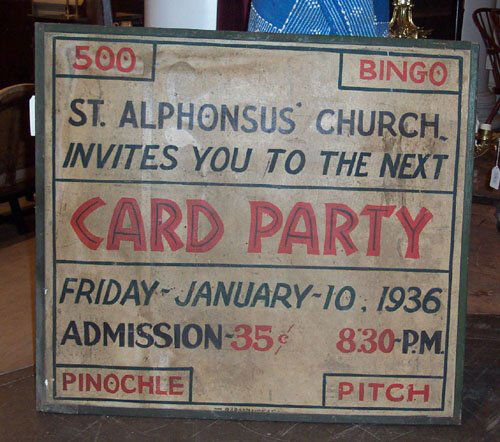 500 BINGO
ST. ALPHONSUS' CHURCH
INVITES YOU TO THE NEXT
CARD PARTY
FRIDAY-JANUARY-10, 1936
ADMISSION-35¢ 8:30-P.M.
PINOCHLE PITCH